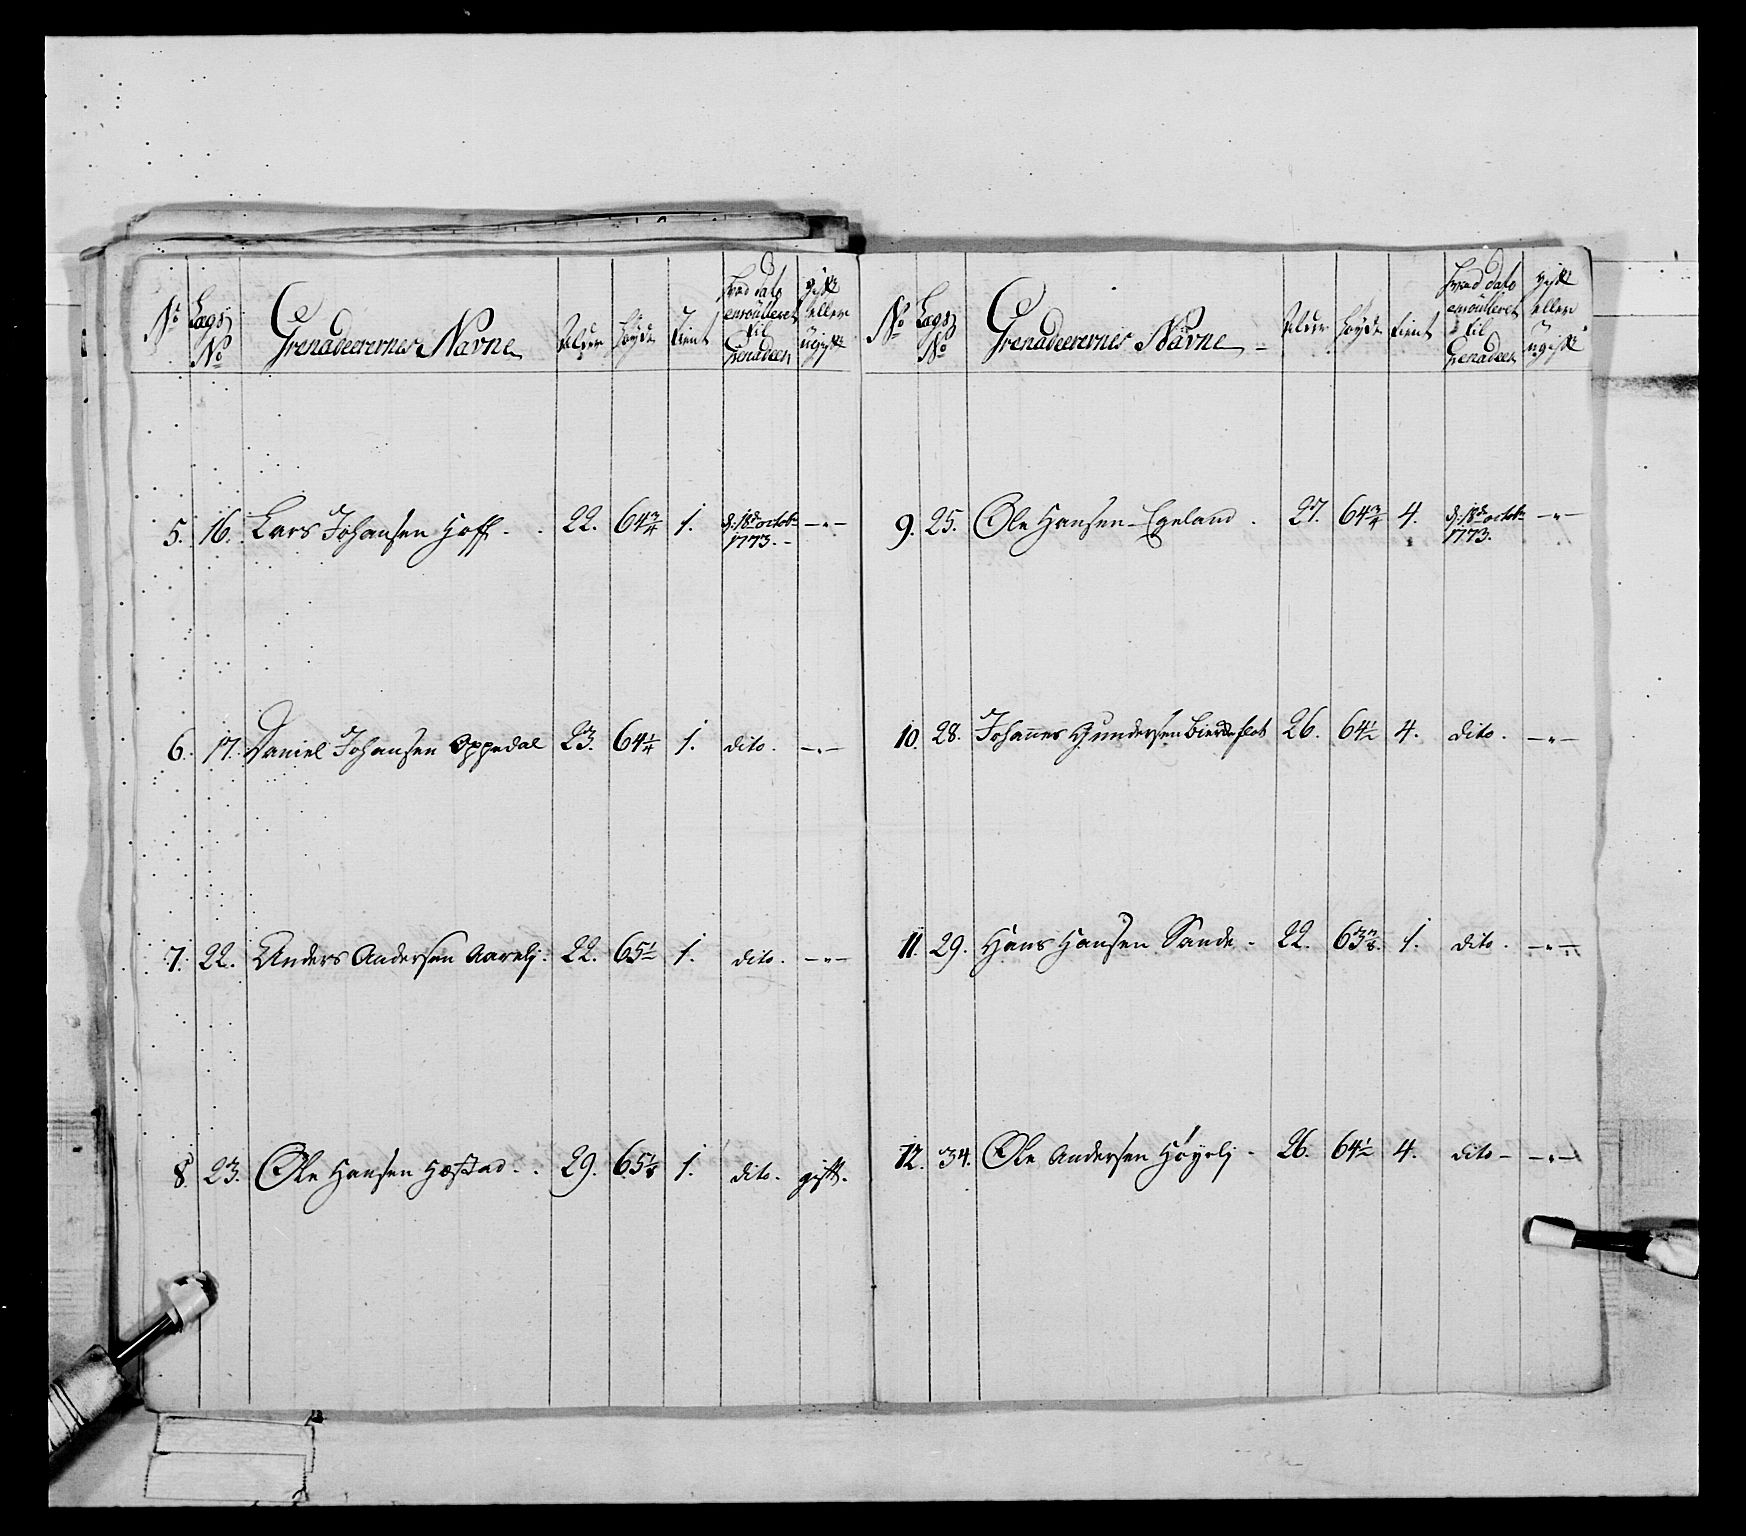 No Lægs No Grenadeerernes Navne Alder Høyde Tient Hvad dato enroulleret til Grenadeer gift eller ugift
5. 16. Lars Johansen Hoff. 22. 64 3/4 1. d: 18de octobr 1773. —„—
6. 17. Daniel Johansen Oppedal 23. 64 1/4 1. dito. —„—
7. 22. Anders Andersen Aarelj. 22. 65 1/2 1. dito. —„—
8. 23. Ole Hansen Hæstad. 29. 65 1/8 1. dito. gift.
No Lægs No Grenadeerernes Navne Alder Høyde tient Hvad dato enroulleret til Grenadeer gift eller ugift
9. 25. Ole Hansen Egeland. 27. 64 3/4 4. d: 18de octobr 1773. —„—
10. 28. Johannes Gundersen 26. 64 1/2 4. dito. —„—
11. 29. Hans Hansen Sande. 22. 63 7/8 1. dito. —„—
12. 34. Ole Andersen Høyelj. 26. 64 1/2 4. dito —„—